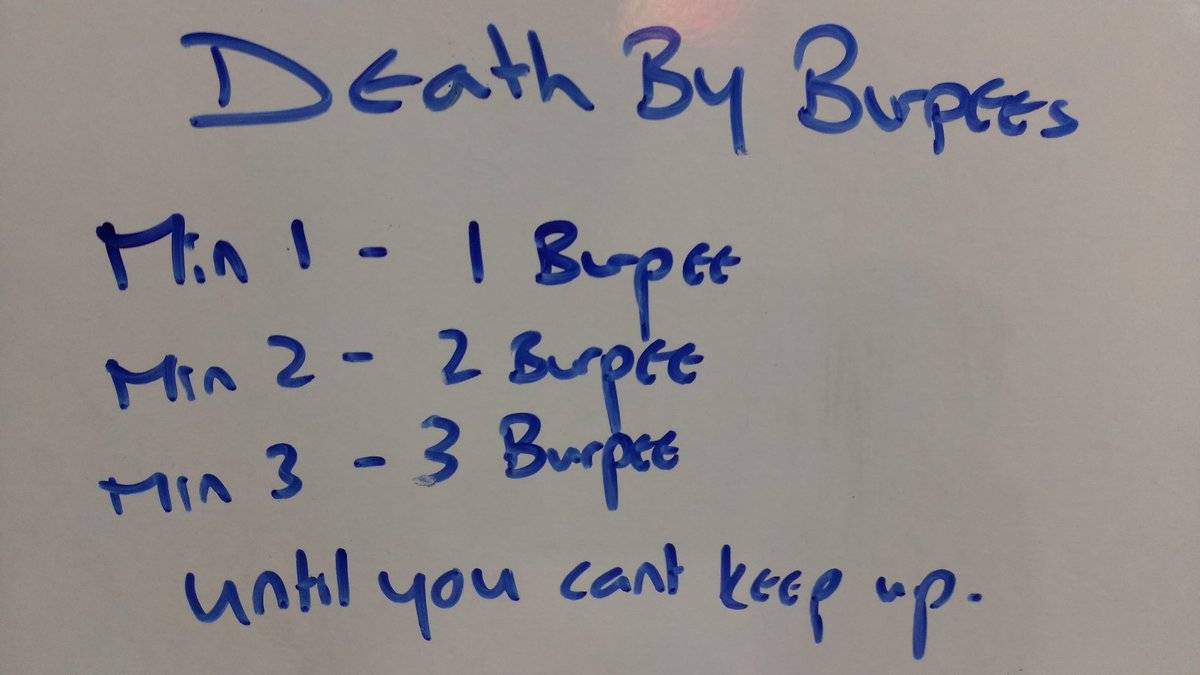 Death By Burpees
Min 1 - 1 Burpee
Min 2 - 2 Burpee
Min 3 - 3 Burpee
until you cant keep up.